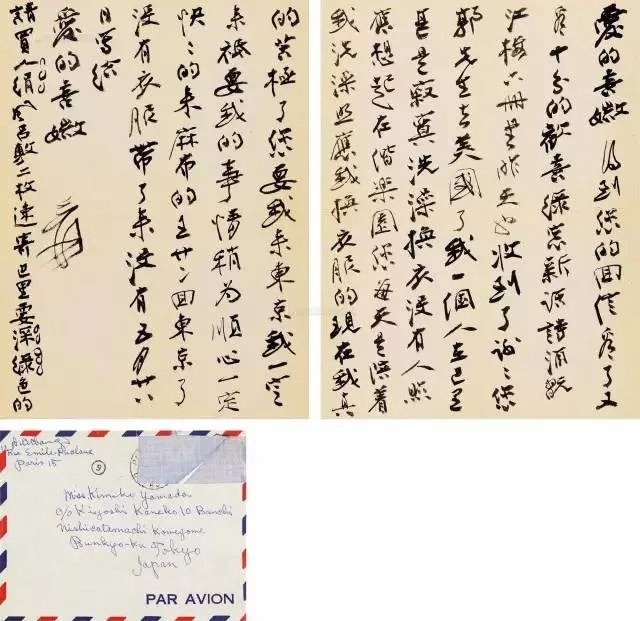 愛的喜嫩 得到您的回信看了又
看十分的歡喜
江梅六冊是昨天也收到了謝〻您
郭先生去美國了我一個人在巴里
甚是寂寞洗澡換衣沒有人照
應想起在偕樂園您每天是陪着
我洗澡照應我換衣服的現在我真
的苦極了您要我來東京我一定
來祗要我的事情稍為順心一定
快〻的來麻布的王廿二回東京了
沒有衣服帶了來沒有五月廿八
日寫給
愛的喜嫩 爰
請買人絹 色 二枚速寄巴里要深綠色的
Rue Emile
Paris 15
Miss. Kimiko Yamada
c/o Kiyoshi Kaneko 10 Banchi
Nishicatamachi Komagome
Bunkyo-Ku Tokyo
Japan
PAR AVION